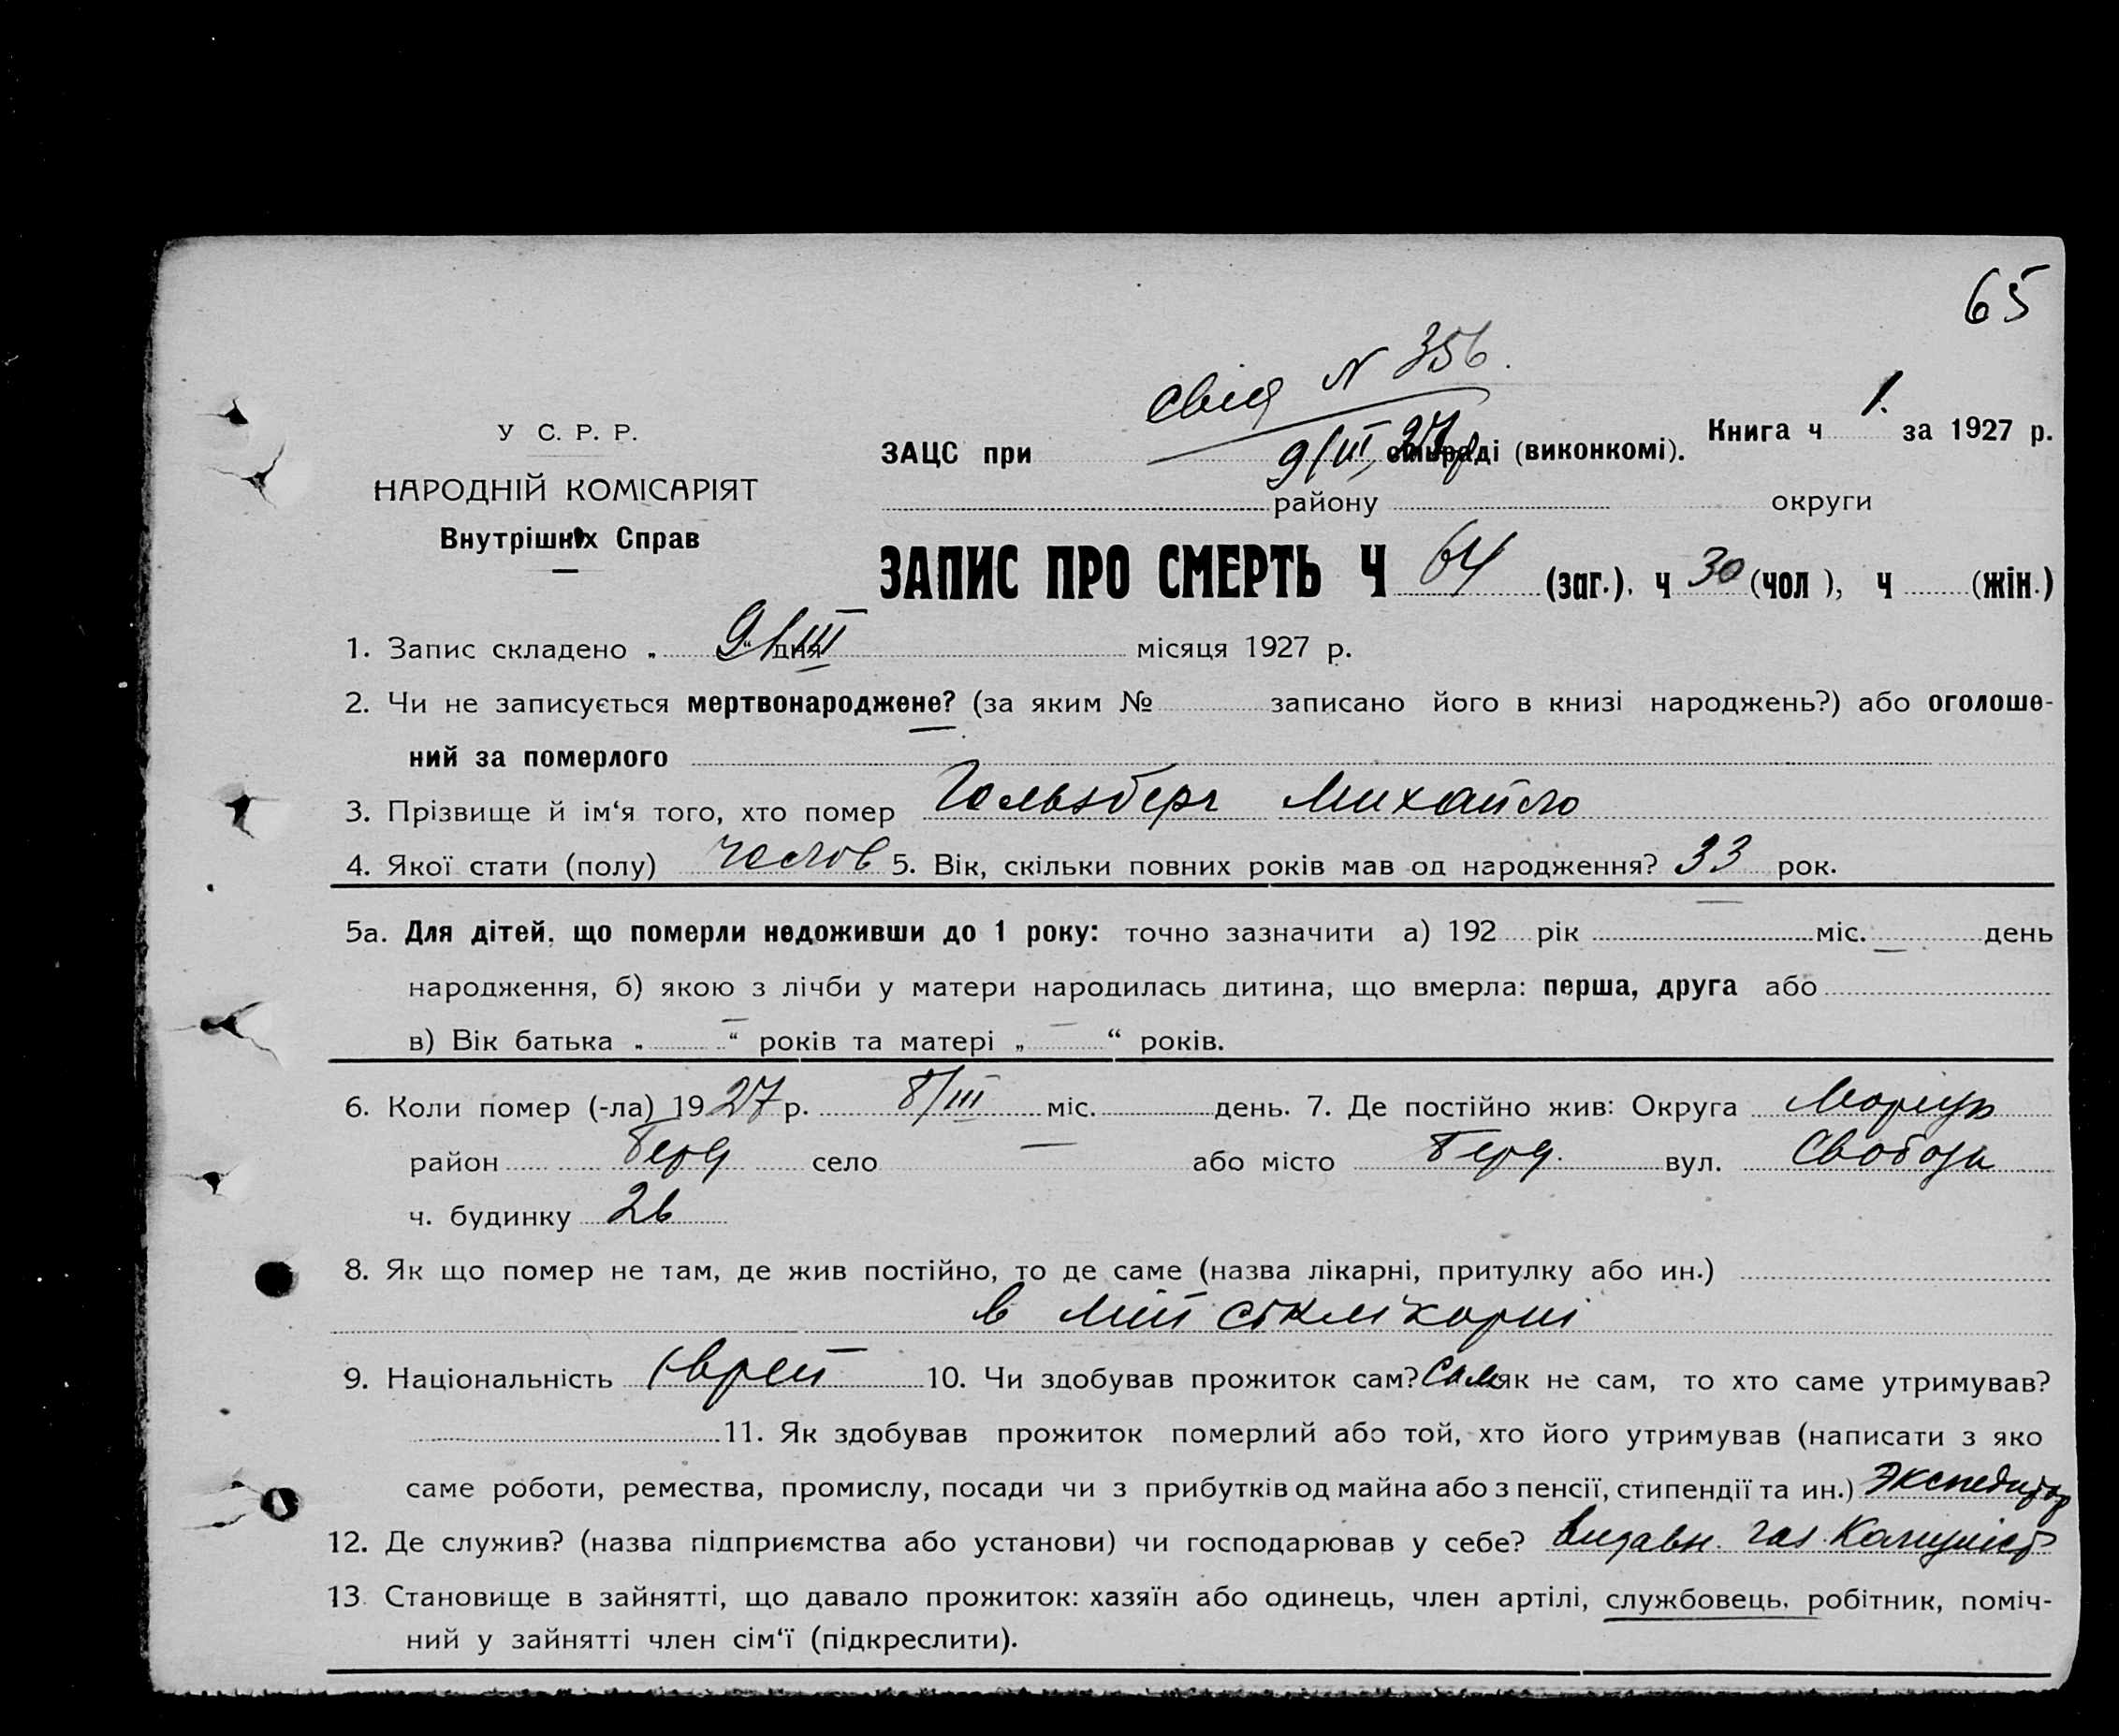 65
свід N 356.
9/III 27
У С. Р. Р.
НАРОДНІЙ КОМІСАРІЯТ
Внутрішніх Справ
Книга ч 1. за 1927 р.
ЗАЦС при сільраді (виконкомі).
району округи
ЗАПИС ПРО СМЕРТЬ Ч 64 (заг.), ч 30 (чол), ч (жін.)
1. Запис складено „ 9/III “ дня місяця 1927 р.
2. Чи не записується мертвонароджене? (за яким № записано його в книзі народжень?) або оголоше-
ний за померлого
3. Прізвище й ім‘я того, хто помер Гольдберг Михайло
4. Якої стати (полу) чолов 5. Вік, скільки повних років мав од народження? 33 рок.
5а. Для дітей, що померли недоживши до 1 року: точно зазначити а) 192 рік міс. — день
народження, б) якою з лічби у матери народилась дитина, що вмерла: перша, друга або
в) Вік батька „ — “ років та матері „ — “ років.
6. Коли помер (-ла) 1927 р. 8/III міс. день. 7. Де постійно жив: Округа Маріуп
район Берд село — або місто Берд. вул. Свободи
ч. будинку 26
8. Як що помер не там, де жив постійно, то де саме (назва лікарні, притулку або ин.)
в
9. Національність Єврей 10. Чи здобував прожиток сам? Сам як не сам, то хто саме утримував?
11. Як здобував прожиток померлий або той, хто його утримував (написати з яко
саме роботи, ремества, промислу, посади чи з прибутків од майна або з пенсії, стипендії та ин.) Экспедитор
12. Де служив? (назва підприємства або установи) чи господарював у себе? видавн. газ. Комуніст
13. Становище в зайнятті, що давало прожиток: хазяїн або одинець, член артілі, службовець, робітник, поміч-
ний у зайнятті член сім‘ї (підкреслити).